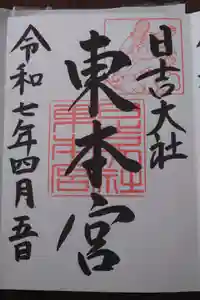 日吉大社
東本宮
令和七年四月五日